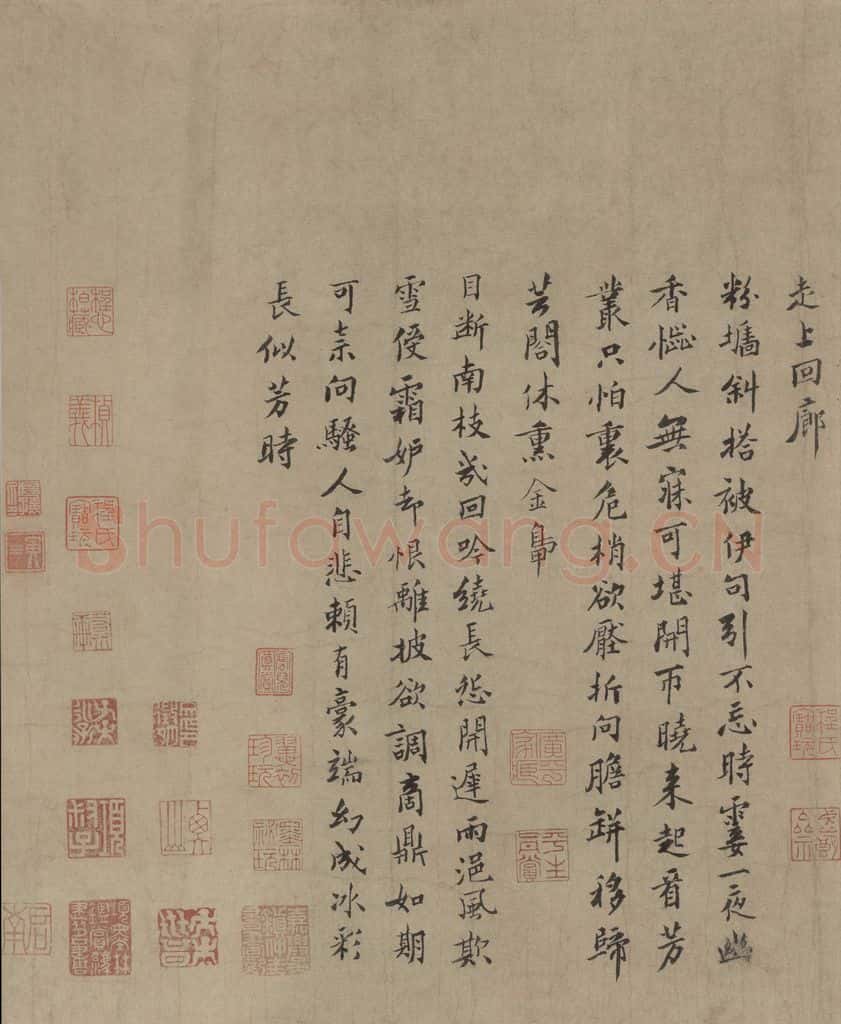 走上回廊
粉墻斜搭被伊勾引不忘時霎一夜幽
香惱人無寐可堪開匝曉来起看芳
叢只怕裏危梢欲壓折向膽缾移歸
芸閣休熏金鴨
目断南枝幾回吟繞長怨開遲雨浥風欺
雪侵霜妒却恨離披欲調商鼎如期
可柰向騷人自悲賴有豪端幻成冰彩
長似芳時
shufawang.CN